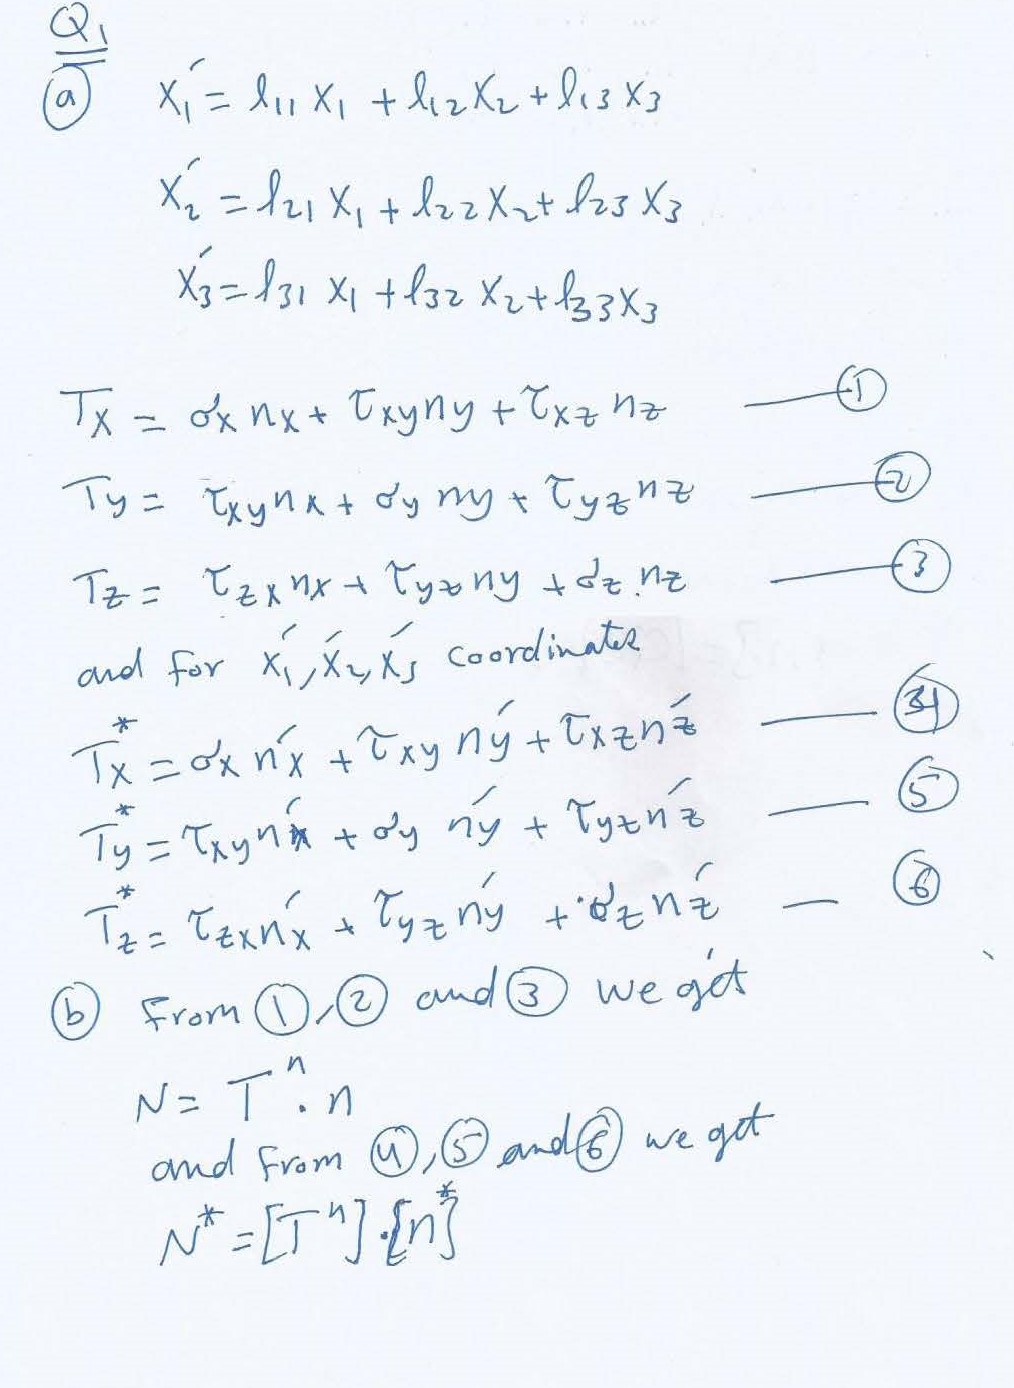 Q1
(a) x₁′ = l₁₁ x₁ + l₁₂ x₂ + l₁₃ x₃
x₂′ = l₂₁ x₁ + l₂₂ x₂ + l₂₃ x₃
x₃′ = l₃₁ x₁ + l₃₂ x₂ + l₃₃ x₃
Tx = σx nx + τxy ny + τxz nz —— (1)
Ty = τxy nx + σy ny + τyz nz —— (2)
Tz = τzx nx + τyz ny + σz nz —— (3)
and for x₁′, x₂′, x₃′ coordinates
Tx* = σx nx′ + τxy ny′ + τxz nz′ —— (4)
Ty* = τxy nx′ + σy ny′ + τyz nz′ —— (5)
Tz* = τzx nx′ + τyz ny′ + σz nz′ — (6)
(b) From (1), (2) and (3) we get
N = Tⁿ . n
and from (4), (5) and (6) we get
N* = [Tⁿ] . [n*]